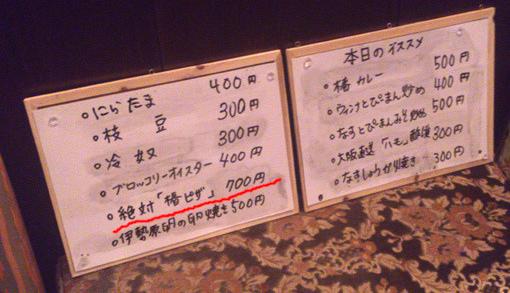 ○にらたま 400円
○枝豆 300円
○冷奴 300円
○ブロッコリーオイスター 400円
○絶対「椿ピザ」 700円
○伊勢原卵の卵焼き 500円
本日のオススメ
○椿カレー 500円
○ウィンナとぴーまん炒め 400円
○なすとぴーまんみそ炒め 500円
○大阪直送「ハモ」酢漬 300円
○なすしょうが焼き 300円